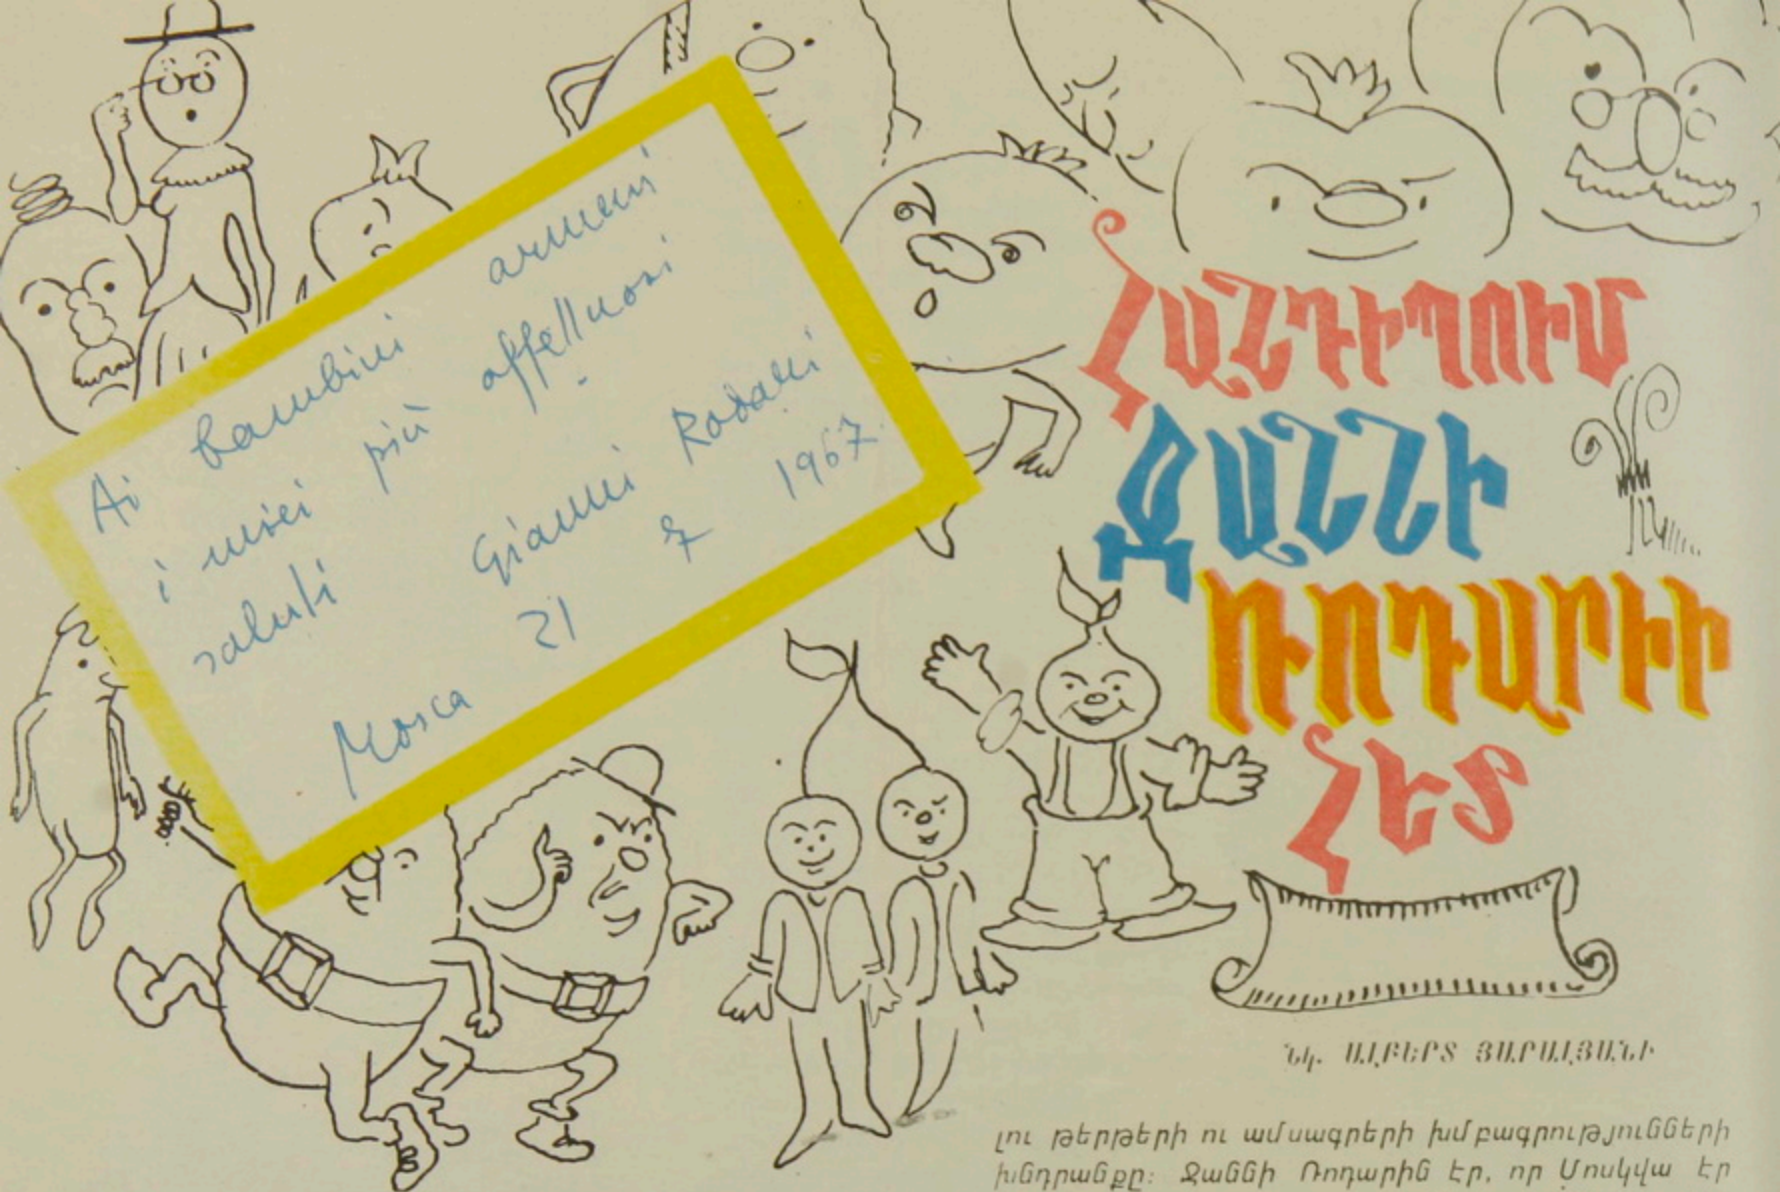 Ai bambini armeni
i miei più affettuosi
saluti Gianni Rodari
Mosca 21 7 1967
ՀԱՆԴԻՊՈՒՄ
ՋԱՆՆԻ
ՌՈԴԱՐԻԻ
ՀԵՏ
Նկ. ԱԼԲԵՐՏ ՅԱՐԱԼՅԱՆԻ
լու թերթերի ու ամսագրերի խմբագրությունների
խնդրանքը։ Ջաննի Ռոդարին էր, որ Մոսկվա էր